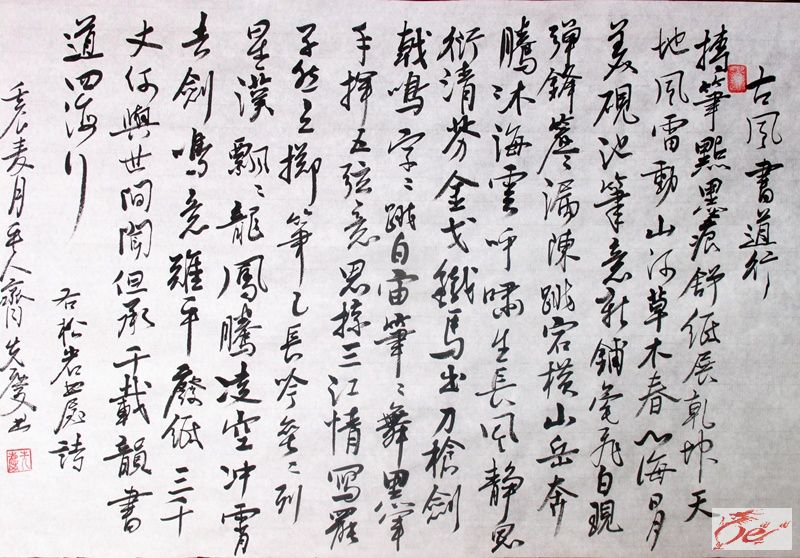 古風書道行
筆點墨痕舒纸展乾坤天
地風雷動山河草木春心海日月
美硯池筆意新鋪毫飛白現
彈鋒漏陳跳宕橫山岳奔
騰沐海雲呼嘯生長風静思
衍清芳金戈鐵馬出刀槍劍
戟鳴字〻跳白宙筆〻舞黑宇
手揮五弦意思掠三江情寫罷
孑然立擲筆乙長吟垒〻列
星漢飄〻龍鳳騰凌空冲霄
去劍鳴意難平廢紙三千
丈何與世間聞但承千載韻書
道四海行
右松岩詩
壬辰麦月平人齊先慶书